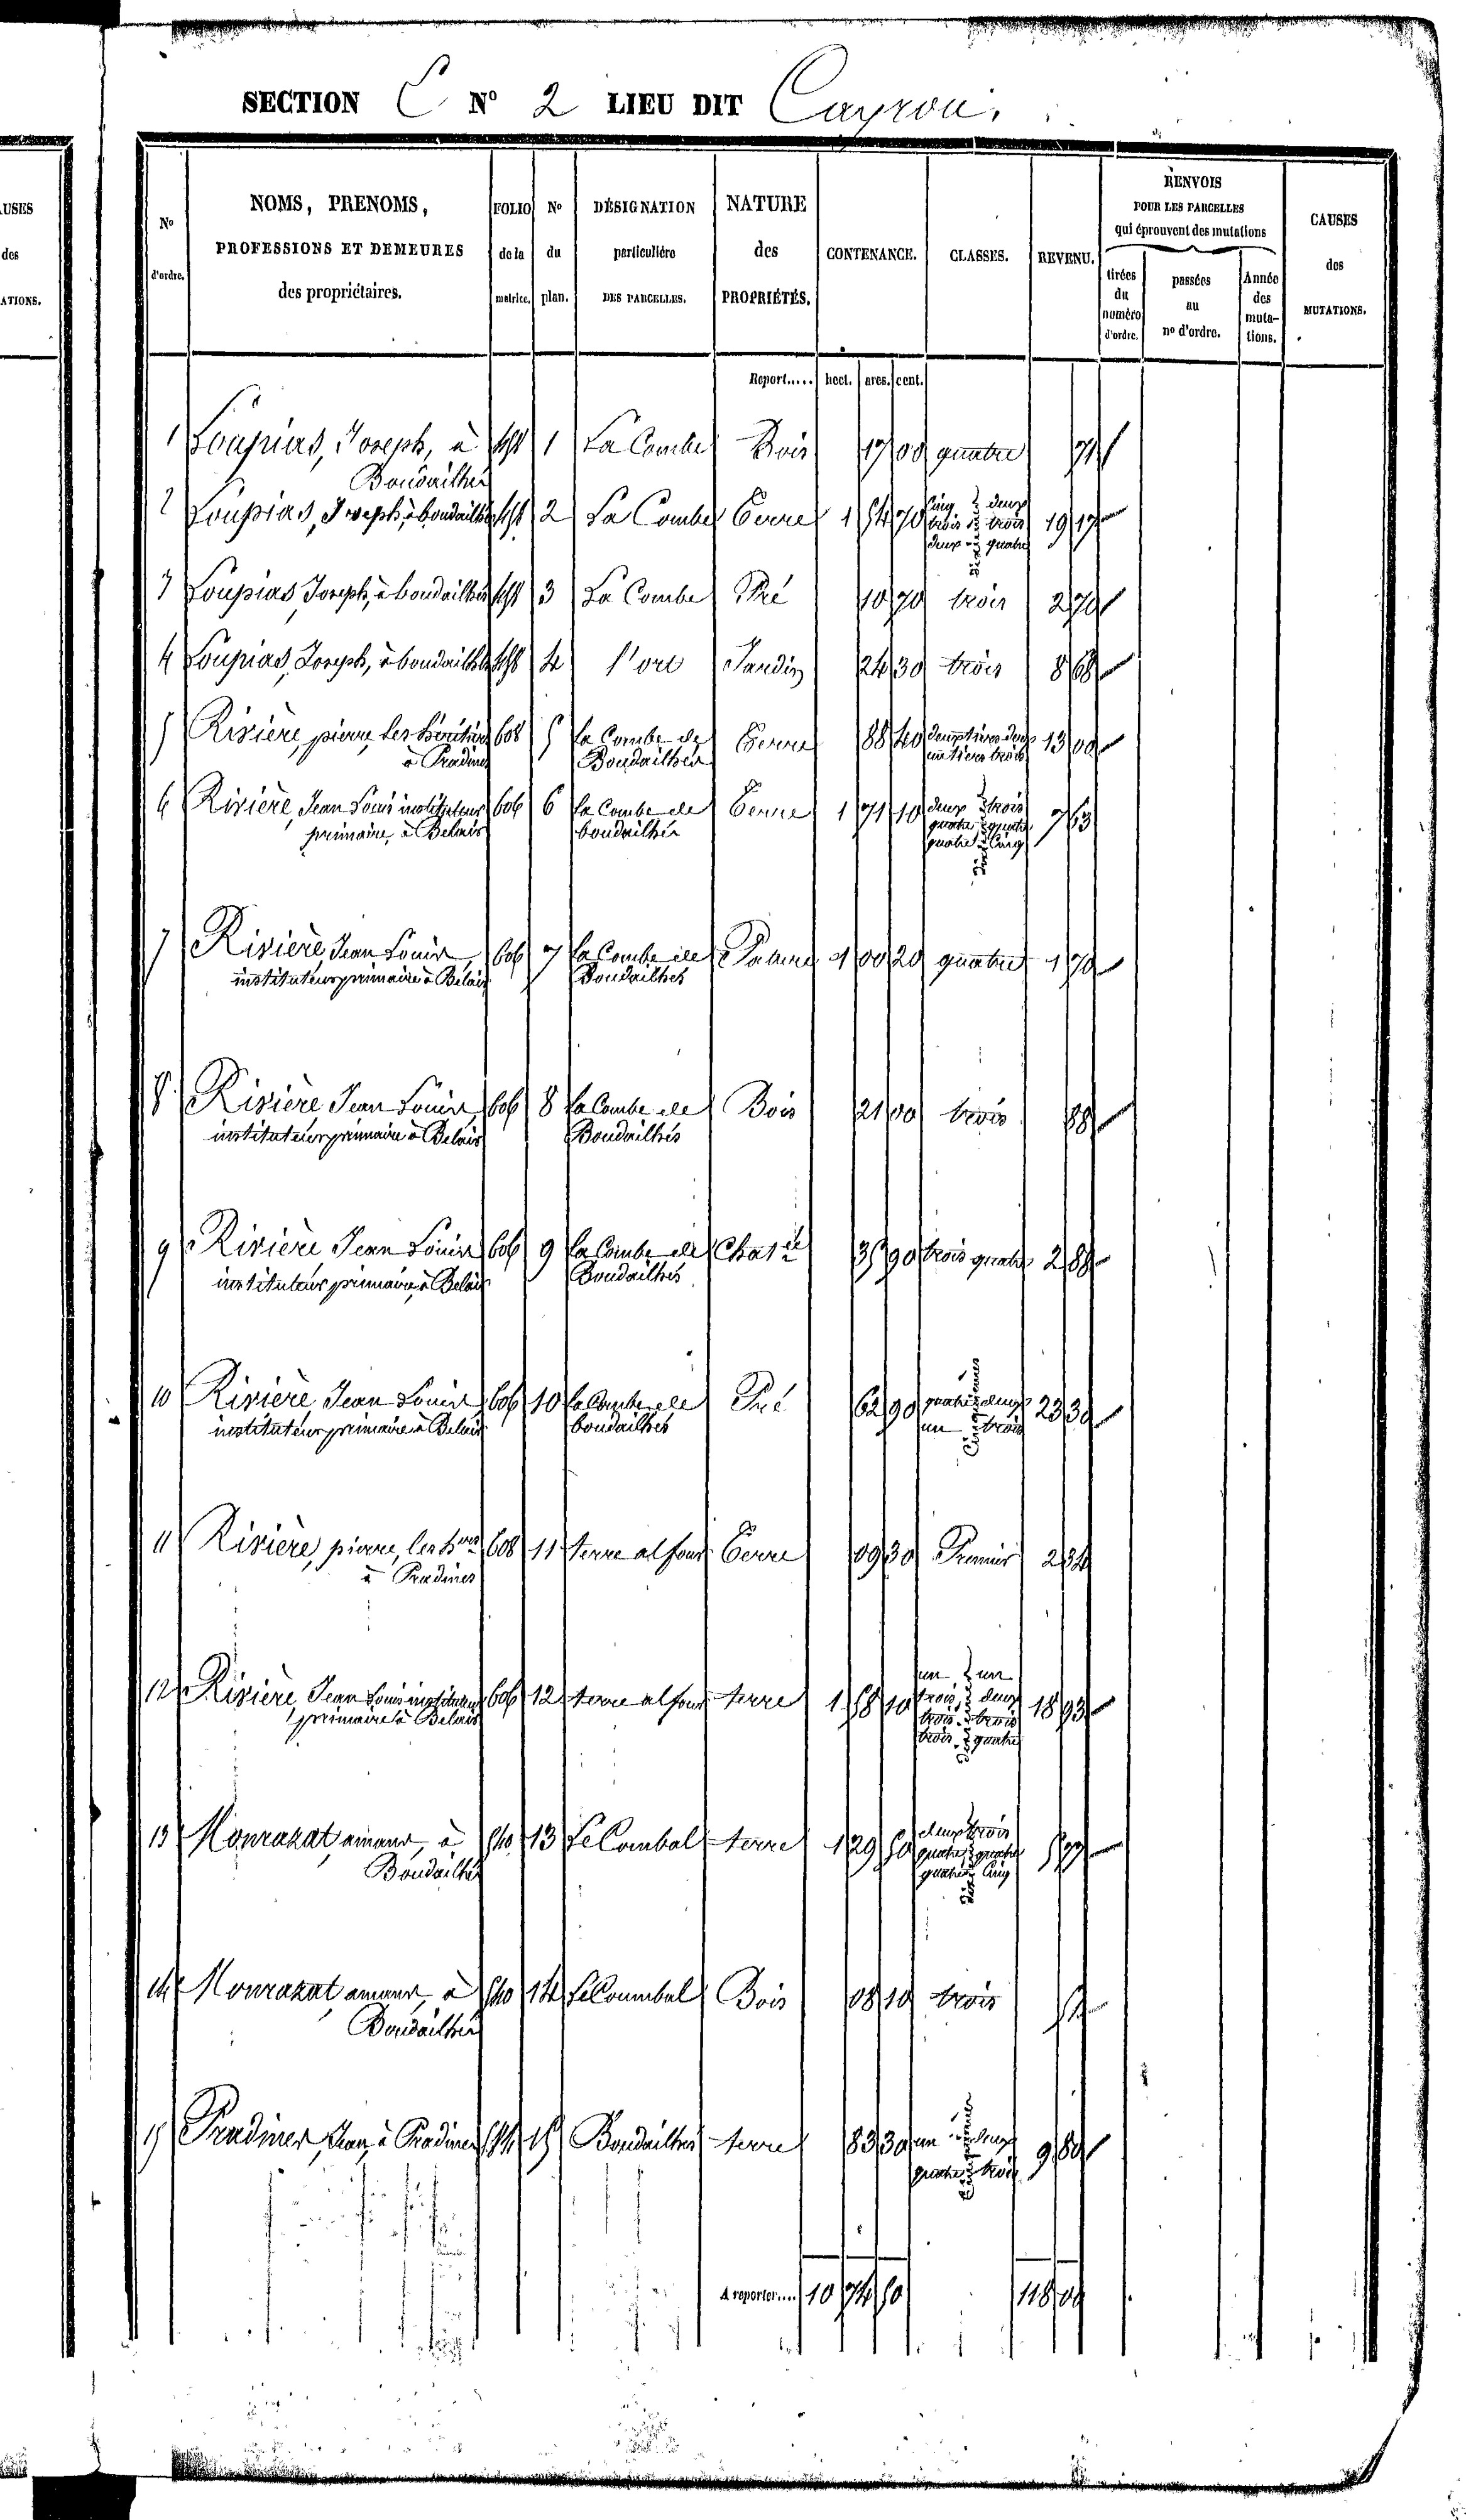 SECTION C N° 2 LIEU DIT Cayrou.
USES
des
ATIONS.
N° d'ordre.
NOMS, PRENOMS,
PROFESSIONS ET DEMEURES
des propriétaires.
FOLIO de la matrice.
N° du plan.
DÉSIGNATION
particulière
DES PARCELLES.
NATURE
des
PROPRIÉTÉS.
CONTENANCE.
CLASSES.
REVENU.
RENVOIS
POUR LES PARCELLES
qui éprouvent des mutations
tirées du numéro d'ordre.
passées au n° d'ordre.
Année des muta- tions.
CAUSES
des
MUTATIONS.
Report..... hect. ares. cent.
1 Loupias, Joseph, à 1 La Combe Bois 17 00 quatre 71
Boudailhés
2 Loupias, Joseph, à boudailhés 2 La Combe Terre 1 54 70 cinq deux trois trois deux quatre 19 17
3 Loupias, Joseph, à boudailhés 3 La Combe Pré 10 70 trois 2 70
4 Loupias, Joseph, à boudailhés 4 l'ort Jardin 24 30 trois 8 68
5 Rivière, pierre, les héritiers 608 5 la Combe de Terre 88 40 deux tiers deux un tiers trois 13 00
à Pradines Boudailhés
6 Rivière, Jean Louis instituteur 606 6 la Combe de Terre 1 71 10 deux trois quatre quatre quatre cinq 7 63
primaire, à Belais boudailhés
7 Rivière, Jean Louis, 606 7 la Combe de Pature 1 00 20 quatre 1 70
instituteur primaire à Belais Boudailhés
8 Rivière Jean Louis 606 8 la Combe de Bois 21 00 trois
instituteur primaire à Belais Boudailhés
9 Rivière Jean Louis 606 9 la Combe de 35 90 trois quatre 2 88
instituteur primaire, à Belais Boudailhés
10 Rivière, Jean Louis 606 10 la Combe de Pré 62 90 quatre deux un trois 23 30
instituteur primaire à Belais boudailhés
11 Rivière, pierre, les hers 608 11 terre al four Terre 09 30 Premier 2 34
à Pradines
12 Rivière, Jean Louis instituteur 606 12 terre al four terre 1 58 10 un un trois deux trois trois trois quatre 18 93
primaire à Belais
13 Mourazat, à 13 Le Combal terre 1 29 50 deux trois quatre quatre quatre cinq 5 77
Boudailhés
14 Mourazat, à 14 Le Coumbal Bois 08 10 trois
Boudailhés
15 Pradines, Jean, à Pradines 15 Boudailhés terre 83 30 un deux quatre trois 9 80
A reporter.... 10 74 50 118 09